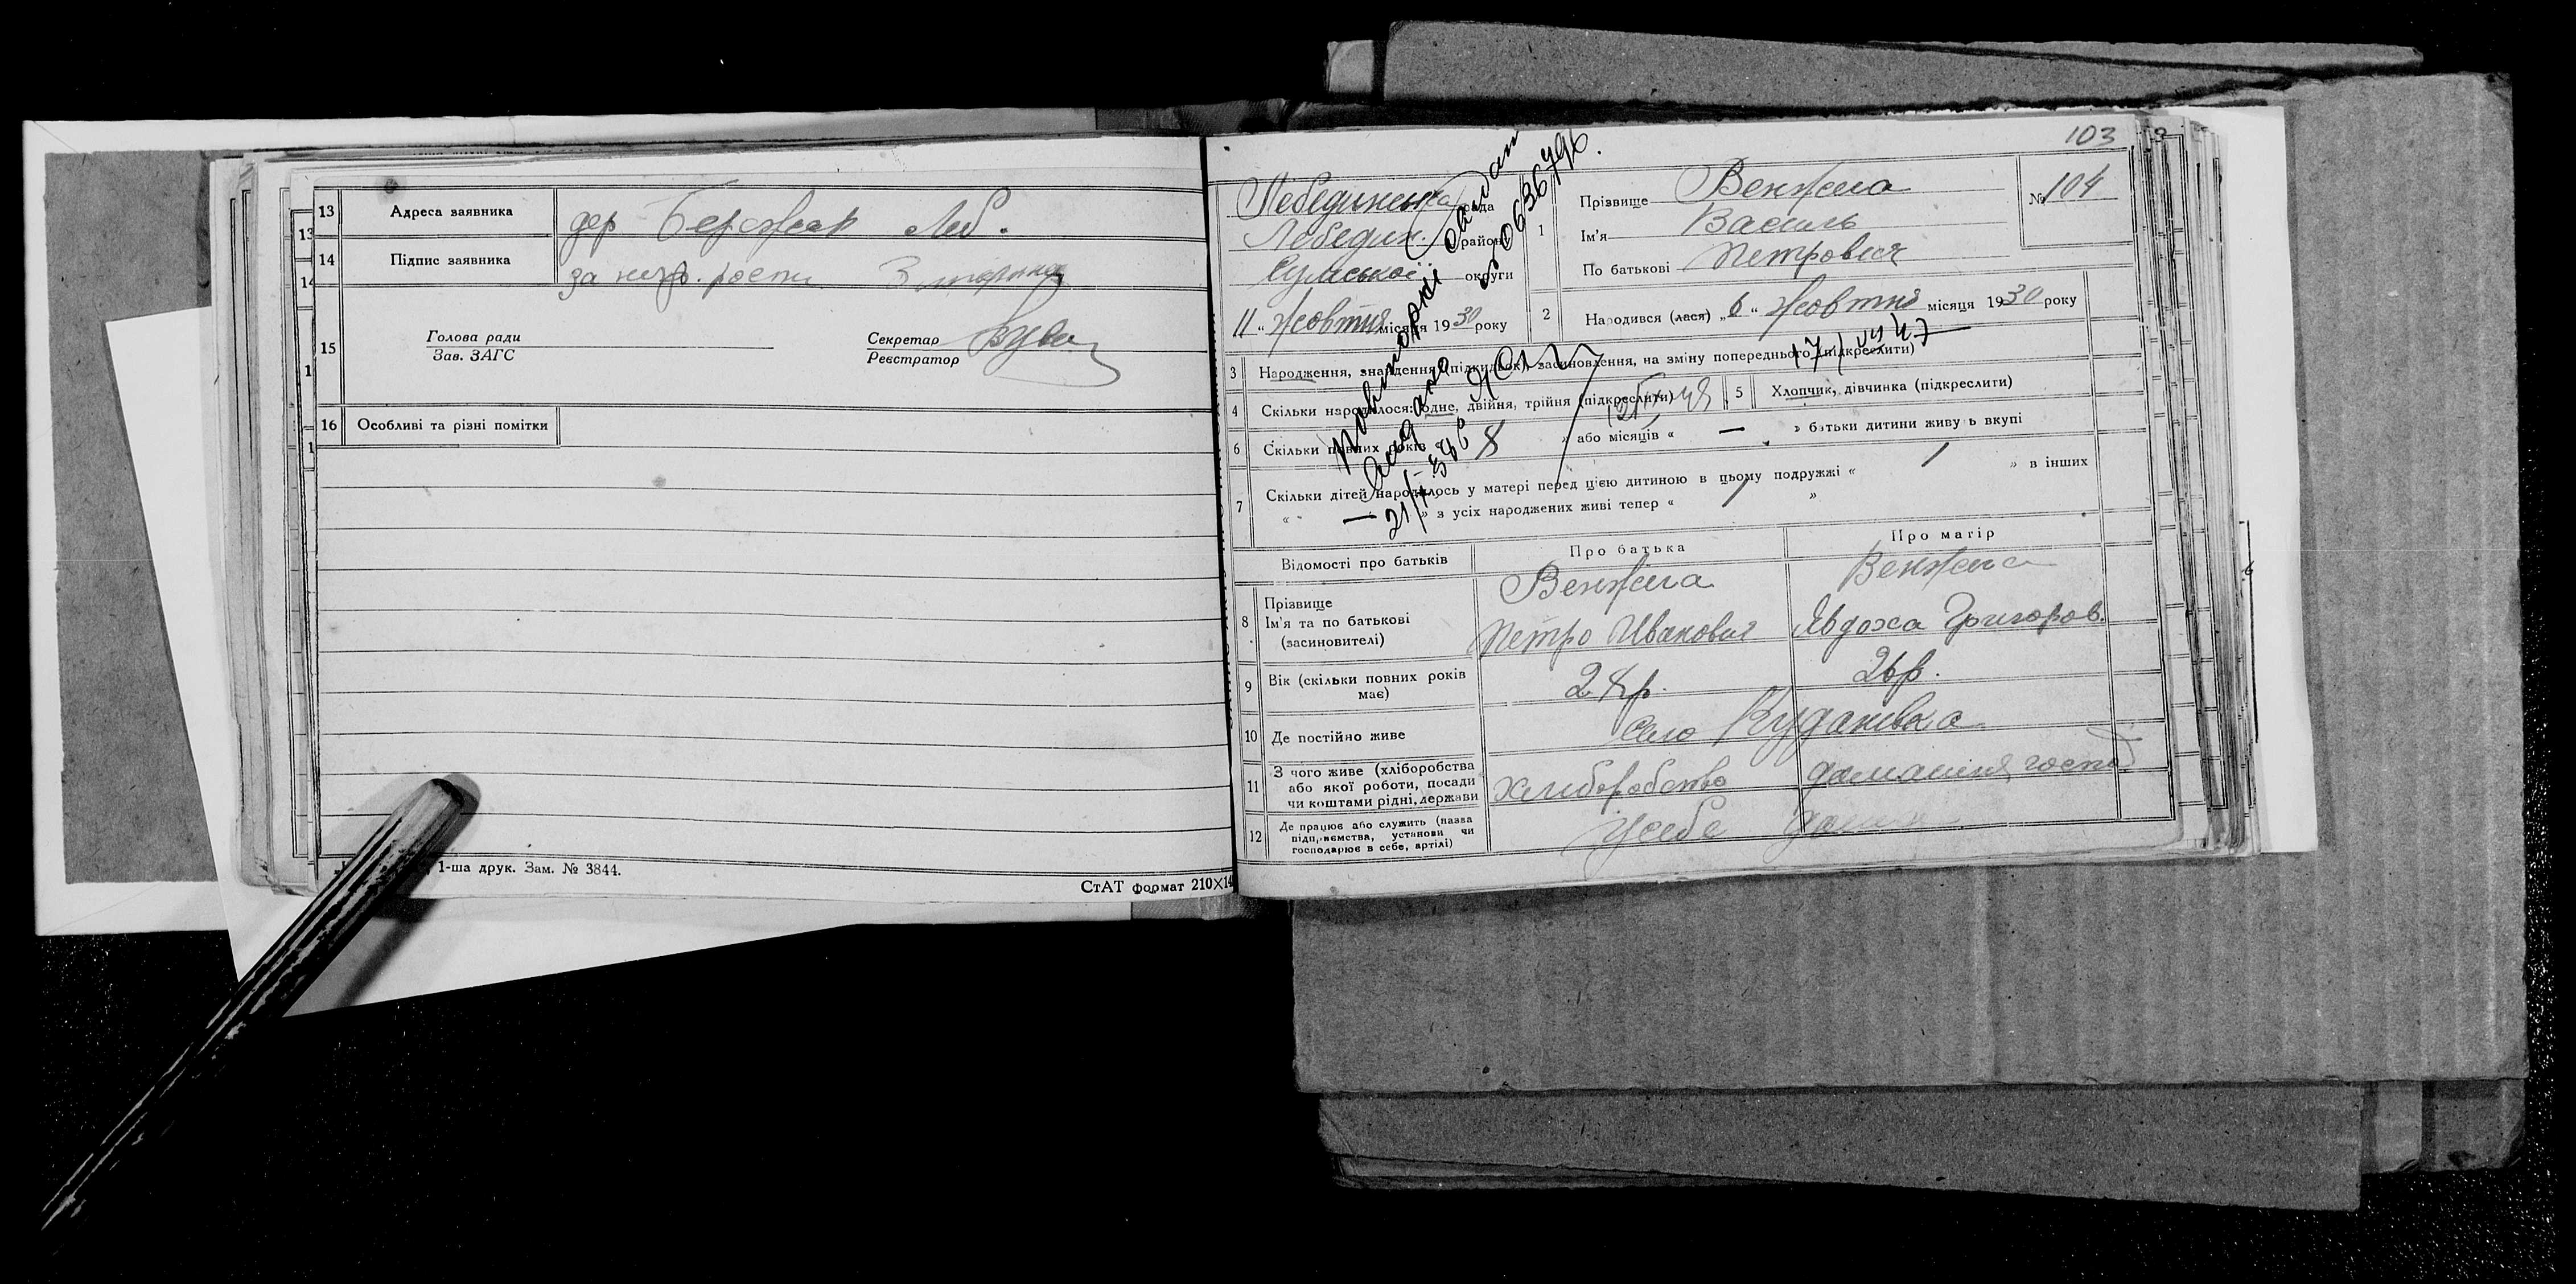 13 Адреса заявника дер Бережок Леб.
14 Підпис заявника за
15 Голова ради
Зав. ЗАГС
Секретар
Реєстратор
16 Особливі та різні помітки
1-ша друк. Зам. № 3844.
СтАТ формат 210×14
103
Лебединська рада
Лебедин. район
Сумської округи
11 „ Жовтня місяця 1930 року
1 Прізвище Венжега
Ім'я Василь
По батькові Петрович
№ 104
2 Народився (лася) „ 6 “ Жовтня місяця 1930 року
3 Народження, знайдення (підкидьок), засиновлення, на зміну попереднього (підкреслити)
4 Скільки народилося: одне, двійня, трійня (підкреслити)
5 Хлопчик, дівчинка (підкреслити)
6 Скільки повних років 8 » або місяців « — » батьки дитини живуть вкупі
7 Скільки дітей народилось у матері перед цією дитиною в цьому подружжі « 1 » в інших
« — » з усіх народжених живі тепер « 1 »
Повторні
21/I-586
Відомості про батьків
Про батька
Про матір
8 Прізвище
Ім'я та по батькові
(засиновителі)
Венжега
Петро Иванович
Венжега
Явдоха Григоров.
9 Вік (скільки повних років має)
28р.
26р.
10 Де постійно живе
село Куданівка
11 З чого живе (хліборобства
або якої роботи, посади
чи коштами рідні, держави
хлиборобство
домашня господ
12 Де працює або служить (назва
підприємства, установи чи
господарює в себе, артілі)
у себе дома